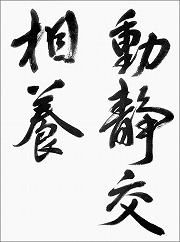 動静交
相養